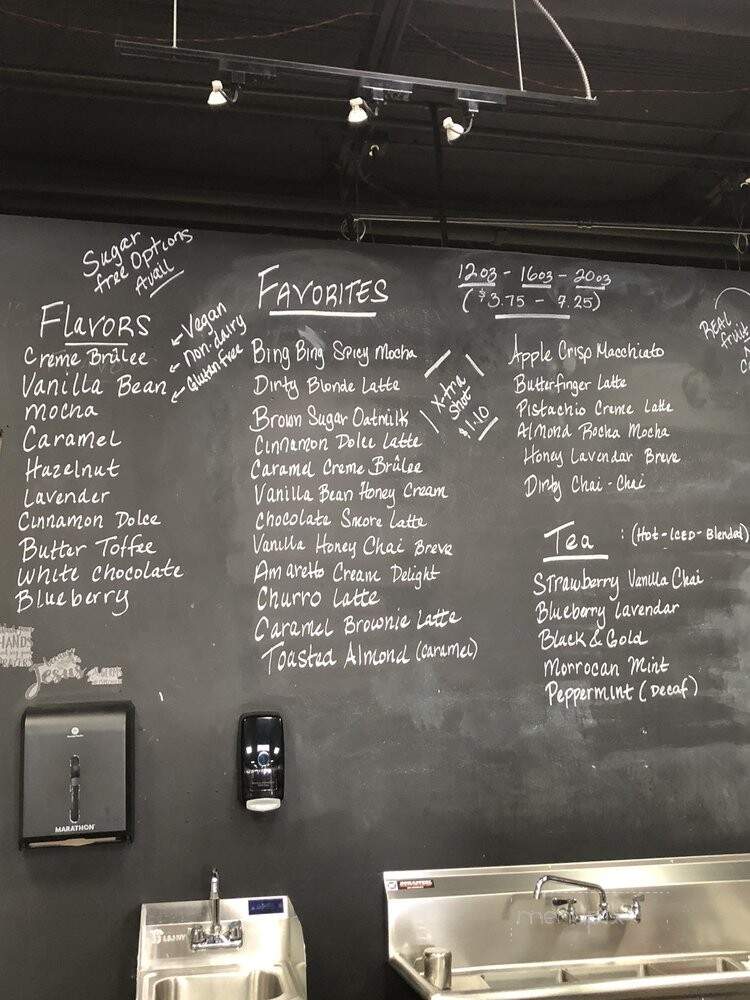 Sugar
free Options
Avail
Flavors
Creme Brûlee
Vanilla Bean
mocha
Caramel
Hazelnut
Lavender
Cinnamon Dolce
Butter Toffee
White Chocolate
Blueberry
Vegan
Non-dairy
Gluten Free
Favorites
Bing Bing Spicy Mocha
Dirty Blonde Latte
Brown Sugar Oatmilk
Cinnamon Dolce Latte
Caramel Creme Brûlee
Vanilla Bean Honey Cream
Chocolate Smore Latte
Vanilla Honey Chai Breve
Amaretto Cream Delight
Churro Latte
Caramel Brownie Latte
Toasted Almond (caramel)
X-tra
Shot
$1.10
12oz - 16oz - 20oz
($3.75 - 7.25)
Apple Crisp Macchiato
Butterfinger Latte
Pistachio Creme Latte
Almond Rocha Mocha
Honey Lavendar Breve
Dirty Chai-Chai
Tea : (Hot-Iced-Blended)
Strawberry Vanilla Chai
Blueberry Lavendar
Black & Gold
Morrocan Mint
Peppermint (Decaf)
REAL
fruit
MARATHON